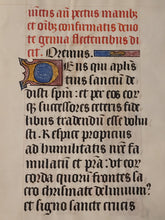 iūctis añ pectus manibꝫ
et oībꝫ cōfirmatis deuo
te genua flectentibus di
cit. Oremus.
Deus qui aplis
tuis sanctū de
disti spm̄: et per eos eor̄
qꝫ successores ceteris fide
libus tradendum esse volu
isti. Respice propicius
ad humilitatis nr̄e fa
mulatū et p̄ta: vt eor̄
corda quorū frontes sa
cro chrismate deliniuimꝰ
et signo sancte crucis